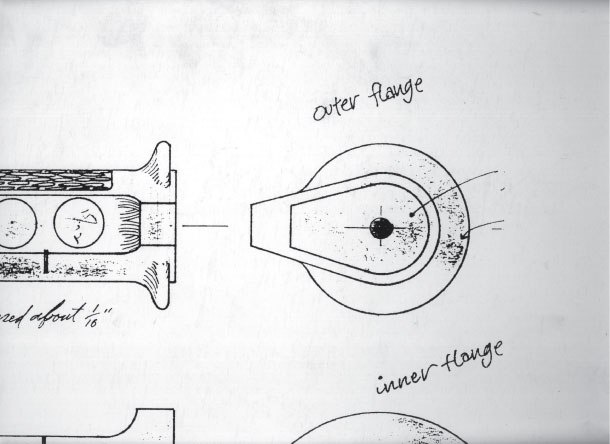 outer flange
about 1/16"
inner flange